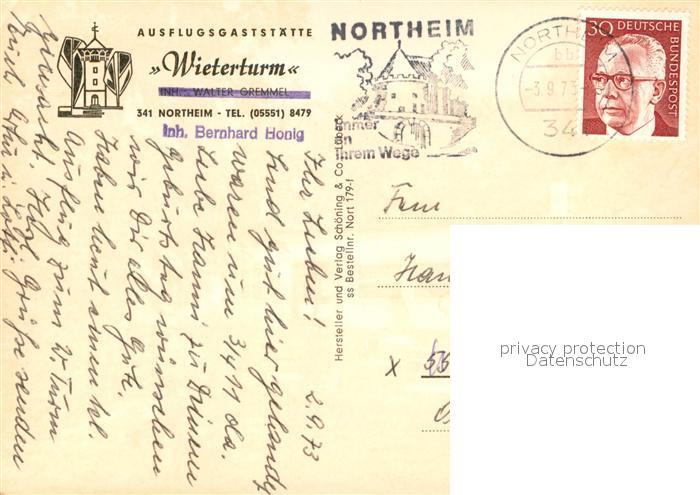 AUSFLUGSGASTSTÄTTE
»Wieterturm«
INH.: WALTER GREMMEL
341 NORTHEIM - TEL. (05551) 8479
Inh. Bernhard Honig
NORTHEIM
immer
in
Ihrem Wege
NORTHEIM
bb
-3.9.73-
34
30 DEUTSCHE
BUNDESPOST
Hersteller und Verlag Schöning & Co., Lübeck
ss Bestellnr. Nort 179-f
2.9.73
Ihr Lieben!
Sind gut hier gelandet,
waren um 3/4 11 da.
Liebe Hanni zu Deinem
Geburtstag wünschen
wir Dir alles Gute.
Haben heut einen kl.
Ausflug zum W. Turm
gemacht. Herzl. Grüße senden
Euch
Frau
x
privacy protection
Datenschutz